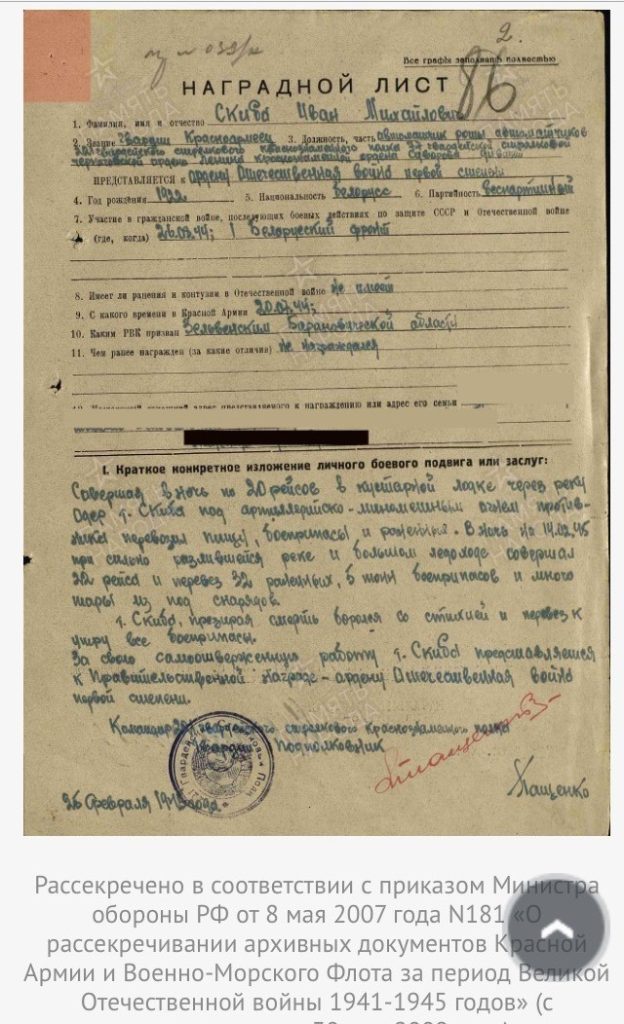 2.
Все графы заполнять полностью
86
НАГРАДНОЙ ЛИСТ
1. Фамилия, имя и отчество Скиба Иван Михайлович
2. Звание Гвардии Красноармеец 3. Должность, часть автоматчик роты автоматчиков
гвардейского стрелкового краснознаменного полка гвардейской стрелковой
ордена Ленина краснознаменной ордена Суворова дивизии
ПРЕДСТАВЛЯЕТСЯ к ордену Отечественная война первой степени
4. Год рождения 1922 5. Национальность Белорус 6. Партийность беспартийный
7. Участие в гражданской войне, последующих боевых действиях по защите СССР и Отечественной войне
(где, когда) 26.09.44; 1 Белорусский фронт
8. Имеет ли ранения и контузии в Отечественной войне не имеет
9. С какого времени в Красной Армии 20.07.44;
10. Каким РВК призван Зельвенским Барановической области
11. Чем ранее награжден (за какие отличия) не награждался
представляемого к награждению или адрес его семьи
I. Краткое конкретное изложение личного боевого подвига или заслуг:
Совершая в ночь по 20 рейсов в кустарной лодке через реку
Одер т. Скиба под артиллерийско-минометным огнем против-
ника перевозил пищу, боеприпасы и раненных. В ночь на 14.02.45
при сильно разлившейся реке и большом ледоходе совершал
22 рейса и перевез 32 раненных, 5 тонн боеприпасов и много
тары из под снарядов.
т. Скиба, презирая смерть боролся со стихией и перевез к
утру все боеприпасы.
За свою самоотверженную работу т. Скиба представляется
к Правительственной награде - ордену Отечественная война
первой степени.
Командир гвардейского стрелкового Краснознаменного полка
Гвардии Подполковник
Пащенко
25 февраля 1945 года.
Рассекречено в соответствии с приказом Министра
обороны РФ от 8 мая 2007 года N181 «О
рассекречивании архивных документов Красной
Армии и Военно-Морского Флота за период Великой
Отечественной войны 1941-1945 годов» (с